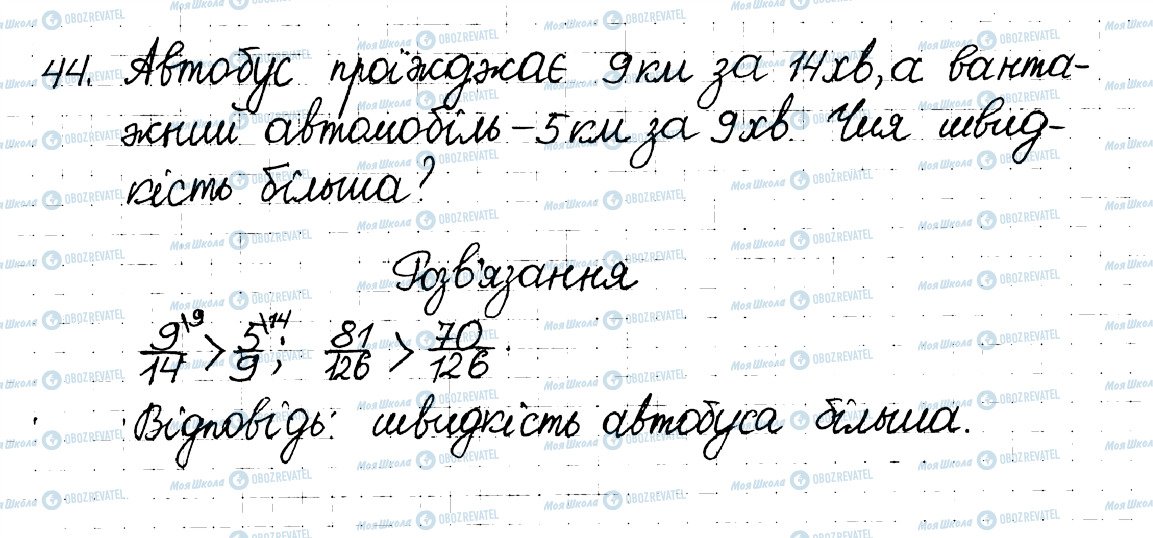 44. Автобус проїжджає 9 км за 14 хв, а ванта-
жний автомобіль – 5 км за 9 хв. Чия швид-
кість більша?
Розв'язання
9\9/14 > 5\14/9; 81/126 > 70/126.
Відповідь: швидкість автобуса більша.
МояШкола OBOZREVATEL